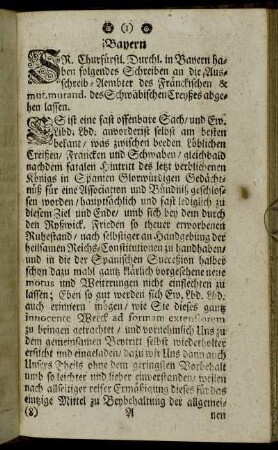 (1)
Bayern
SR. Churfürstl. Durchl. in Bayern ha-
ben folgendes Schreiben an die Aus-
schreib-Aembter des Fränckischen &
mut. mutand. des Schwäbischen Creyßes abge-
hen lassen.
ES ist eine fast offenbare Sach / und Ew.
Libd. Lbd. anvorderist selbst am besten
bekant / was zwischen beeden Löblichen
Creißen / Francken und Schwaben / gleichbald
nach dem fatalen Hintrit des letzt verblichenen
Königs in Spanien Glorwürdigen Gedächt-
nüß für eine Association und Bündnüß geschlos-
sen worden / hauptsächlich und fast lediglich zu
diesem Ziel und Ende / umb sich bey dem durch
den Ryßwick. Frieden so theuer erworbenen
Ruhestand / nach selbstiger an Handgebung der
heilsamen Reichs-Constitutionen zu handhaben /
und in die der Spanischen Succession halber
schon dazu mahl gantz klärlich vorgesehene neue
motus und Weiterungen nicht einflechten zu
lassen; Eben so gut werden sich Ew. Lbd. Lbd.
auch erinnern mögen / wie Sie dieses gantz
innocente Werck ad formam extensiorem
zu bringen getrachtet / und vornehmlich Uns zu
dem gemeinsamen Beytritt selbst wiederholter
ersucht und eingeladen / dazu wir Uns dann auch
Unsers Theils ohne dem geringsten Vorbehalt
umb so leichter und lieber einverstanden / weilen
nach allseitiger reifer Ermäßigung dieses für das
eintzige Mittel zu Beybehaltung der allgemei-
(8) A nen